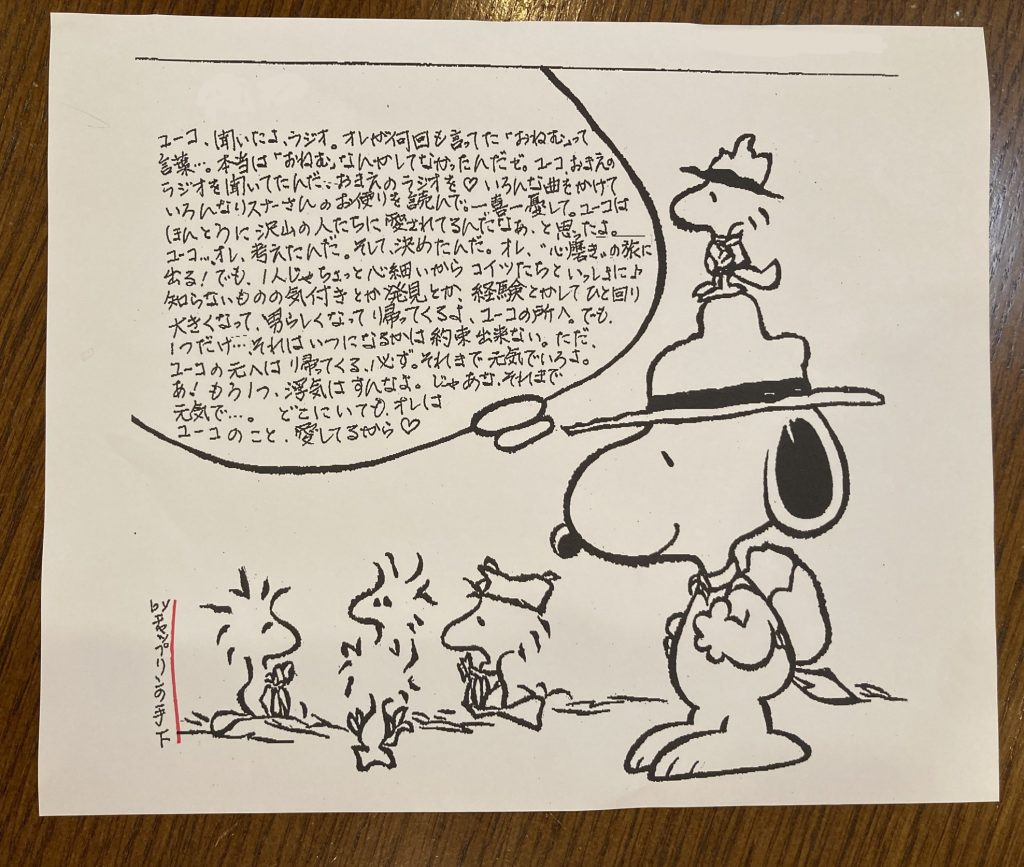 ユーコ、聞いたよ、ラジオ。オレが何回も言ってた「おねむ」って
言葉…。本当は「おねむ」なんかしてなかったんだぜ。ユーコ、おまえの
ラジオを聞いてたんだ…おまえのラジオを♡ いろんな曲をかけて
いろんなリスナーさんのお便りを読んで。一喜一憂して。ユーコは
ほんとうに沢山の人たちに愛されてるんだなあ、と思ったよ。
ユーコ…オレ、考えたんだ。そして、決めたんだ。オレ、“心磨き”の旅に
出る！でも、1人じゃちょっと心細いから コイツたちといっしょに♪
知らないものの気付きとか発見とか、経験とかしてひと回り
大きくなって、男らしくなって帰ってくるよ、ユーコの所へ。でも、
1つだけ…、それはいつになるかは約束出来ない。ただ、
ユーコの元へは帰ってくる、必ず。それまで元気でいろよ。
あ！もう1つ、浮気はすんなよ。じゃあな、それまで
元気で…。 どこにいても、オレは
ユーコのこと、愛してるから♡
byチャップリンの手下